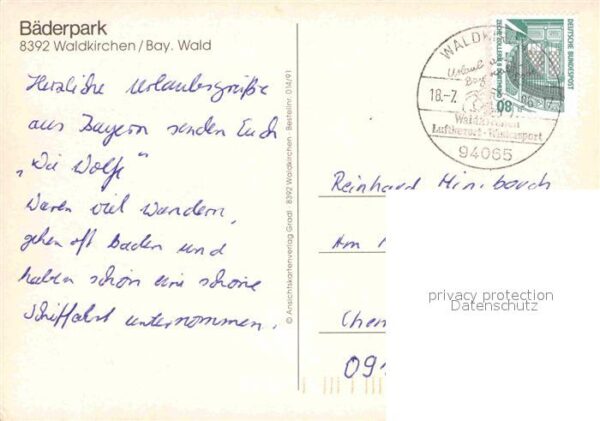 Bäderpark
8392 Waldkirchen/Bay. Wald
Herzliche Urlaubsgrüße
aus Bayern senden Euch
„Die Wölfe"
Waren viel wandern,
gehen oft baden und
haben schon eine schöne
Schiffahrt unternommen.
© Ansichtskartenverlag Gradl · 8392 Waldkirchen · Bestellnr. 014/91
WALDKI
Urlaub
18.-7.
Luftkurort-Wintersport
94065
DEUTSCHE BUNDESPOST
80
Reinhard
Am
Chem
091
privacy protection
Datenschutz